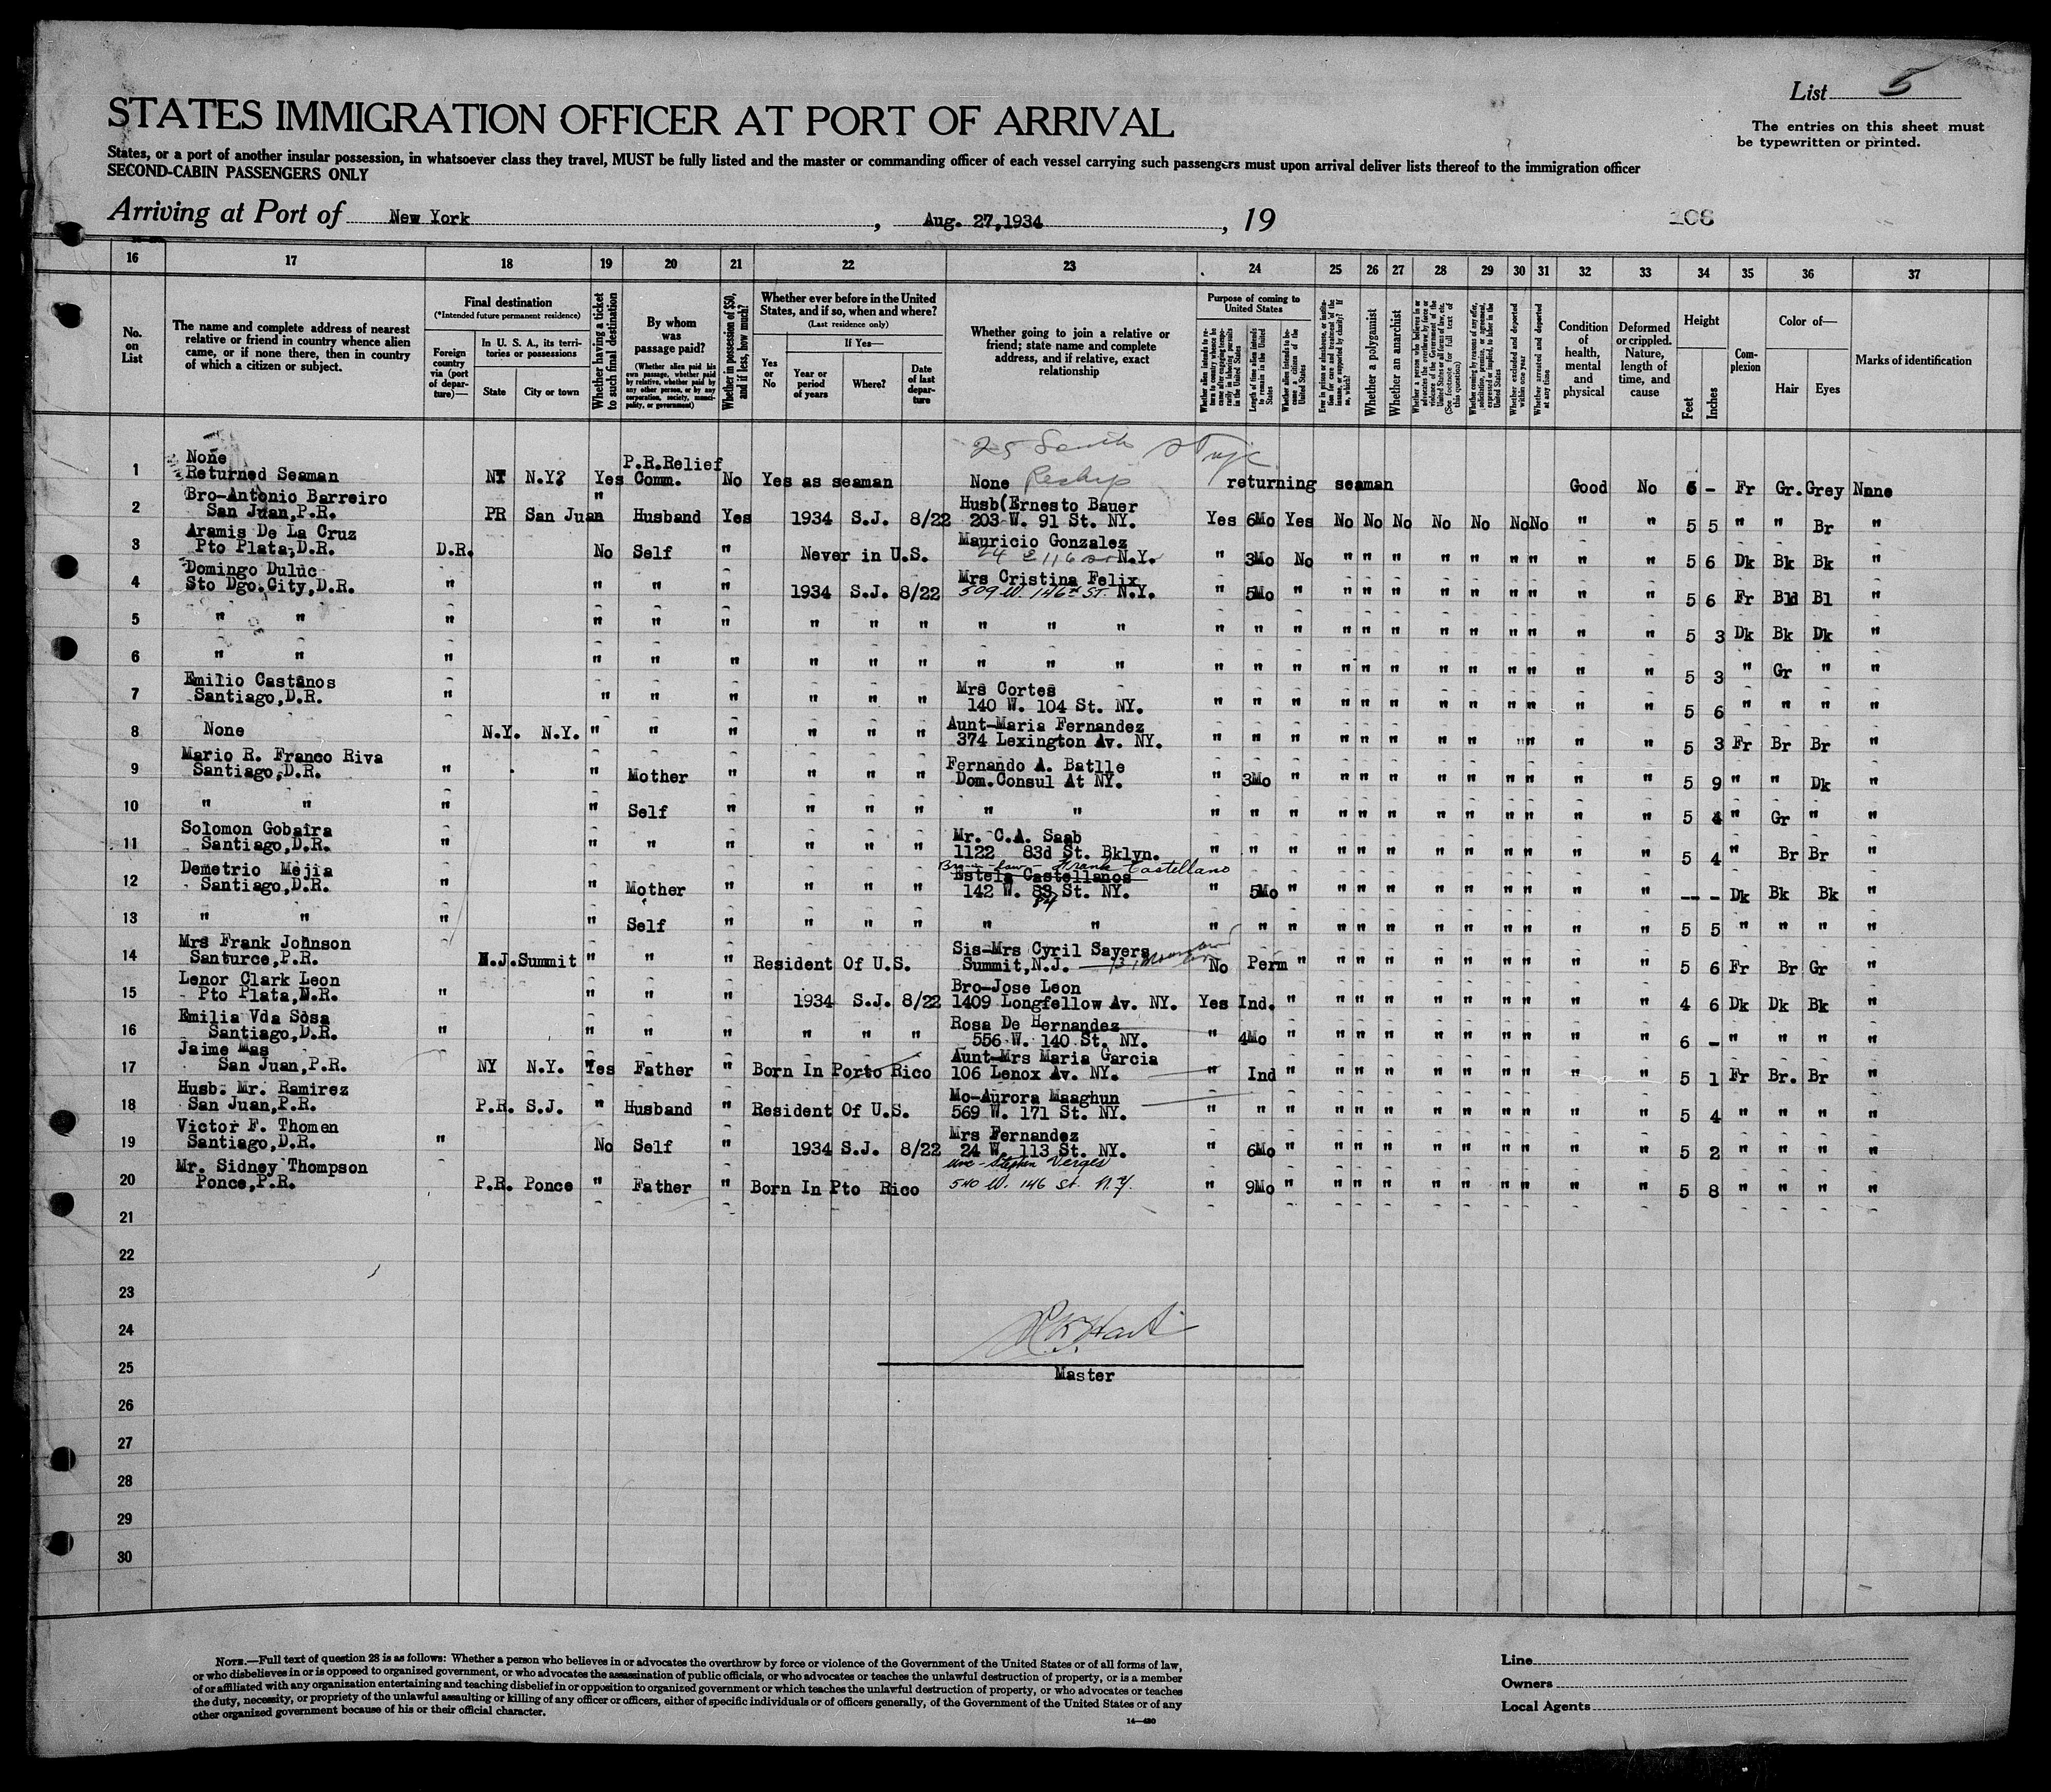 List 5
STATES IMMIGRATION OFFICER AT PORT OF ARRIVAL
The entries on this sheet must
be typewritten or printed.
States, or a port of another insular possession, in whatsoever class they travel, MUST be fully listed and the master or commanding officer of each vessel carrying such passengers must upon arrival deliver lists thereof to the immigration officer
SECOND-CABIN PASSENGERS ONLY
Arriving at Port of New York, Aug. 27,1934, 19
16 17 18 19 20 21 22 23 24 25 26 27 28 29 30 31 32 33 34 35 36 37
No. on List
The name and complete address of nearest
relative or friend in country whence alien
came, or if none there, then in country
of which a citizen or subject.
Final destination
(*Intended future permanent residence)
Foreign country via (port of departure)—
In U. S. A., its territories or possessions
State
City or town
Whether having a ticket to such final destination
By whom was passage paid?
(Whether alien paid his own passage, whether paid by relative, whether paid by any other person, or by any corporation, society, municipality, or government)
Whether in possession of $50, and if less, how much?
Whether ever before in the United
States, and if so, when and where?
(Last residence only)
Yes or No
If Yes—
Year or period of years
Where?
Date of last departure
Whether going to join a relative or
friend; state name and complete
address, and if relative, exact
relationship
Purpose of coming to
United States
Whether a polygamist
Whether an anarchist
Condition of health, mental and physical
Deformed or crippled. Nature, length of time, and cause
Height
Feet
Inches
Complexion
Color of—
Hair
Eyes
Marks of identification
1 None
Returned Seaman N.Y? Yes P.R.Relief Comm. No Yes as seaman None Reship returning seaman Good No 6 - Fr Gr. Grey None
2 Bro-Antonio Barreiro
San Juan,P.R. PR San Juan " Husband Yes 1934 S.J. 8/22 Husb(Ernesto Bauer
203 W. 91 St. NY. Yes 6Mo Yes No No No No No No No " " 5 5 " " Br "
3 Aramis De La Cruz
Pto Plata,D.R. D.R. No Self " Never in U.S. Mauricio Gonzalez
N.Y. " 3Mo No " " " " " " " " " 5 6 Dk Bk Bk "
4 Domingo Duluc
Sto Dgo.City,D.R. " " " " 1934 S.J. 8/22 Mrs Cristina Felix
509 W. 146th ST. N.Y. " 5Mo " " " " " " " " " " 5 6 Fr Bld Bl "
5 " " " " " " " " " " " " " " " " " " " " " " " " " 5 3 Dk Bk Dk "
6 " " " " " " " " " " " " " " " " " " " " " " " " " 5 3 " Gr " "
7 Emilio Castanos
Santiago,D.R. " " " " " " " Mrs Cortes
140 W. 104 St. NY. " " " " " " " " " " " " 5 6 " " " "
8 None N.Y. N.Y. " " " " " " Aunt-Maria Fernandez
374 Lexington Av. NY. " " " " " " " " " " " " 5 3 Fr Br Br "
9 Mario R. Franco Riva
Santiago,D.R. " " Mother " " " " Fernando A. Batlle
Dom.Consul At NY. " 3Mo " " " " " " " " " " 5 9 " " Dk "
10 " " " " Self " " " " " " " " " " " " " " " " " " 5 4 " Gr " "
11 Solomon Gobaira
Santiago,D.R. " " " " " " " Mr. C.A. Saab
1122 83d St. Bklyn. " " " " " " " " " " " " 5 4 " Br Br "
12 Demetrio Mejia
Santiago,D.R. " " Mother " " " " Bro-in-law - Frank Castellano
Estela Castellanos
142 W. 83 St. NY. 84 " 5Mo " " " " " " " " " " -- - Dk Bk Bk "
13 " " " " Self " " " " " " " " " " " " " " " " " " 5 5 " " " "
14 Mrs Frank Johnson
Santurce,P.R. N.J.Summit " " " Resident Of U.S. Sis-Mrs Cyril Sayers
Summit,N.J. No Perm " " " " " " " " " " 5 6 Fr Br Gr "
15 Lenor Clark Leon
Pto Plata,N.R. " " " " 1934 S.J. 8/22 Bro-Jose Leon
1409 Longfellow Av. NY. Yes Ind. " " " " " " " " " " 4 6 Dk Dk Bk "
16 Emilia Vda Sosa
Santiago,D.R. " " " " " " " Rosa De Hernandez
556 W. 140 St. NY. " 4Mo " " " " " " " " " " 6 - " " " "
17 Jaime Mas
San Juan,P.R. NY N.Y. Yes Father " Born In Porto Rico Aunt-Mrs Maria Garcia
106 Lenox Av. NY. " Ind " " " " " " " " " " 5 1 Fr Br. Br "
18 Husb. Mr. Ramirez
San Juan,P.R. P.R. S.J. " Husband " Resident Of U.S. Mo-Aurora Maaghun
569 W. 171 St. NY. " " " " " " " " " " " " 5 4 " " " "
19 Victor F. Thomen
Santiago,D.R. " No Self " 1934 S.J. 8/22 Mrs Fernandez
24 W. 113 St. NY. " 6Mo " " " " " " " " " " 5 2 " " " "
20 Mr. Sidney Thompson
Ponce,P.R. P.R. Ponce " Father " Born In Pto Rico Unc-Stephen Verges
540 W. 146 St. N.Y. " 9Mo " " " " " " " " " " 5 8 " " " "
21
22
23
24
25
Master
26
27
28
29
30
NOTE.—Full text of question 28 is as follows: Whether a person who believes in or advocates the overthrow by force or violence of the Government of the United States or of all forms of law,
or who disbelieves in or is opposed to organized government, or who advocates the assassination of public officials, or who advocates or teaches the unlawful destruction of property, or is a member
of or affiliated with any organization entertaining and teaching disbelief in or opposition to organized government or which teaches the unlawful destruction of property, or who advocates or teaches
the duty, necessity, or propriety of the unlawful assaulting or killing of any officer or officers, either of specific individuals or of officers generally, of the Government of the United States or of any
other organized government because of his or their official character.
14—420
Line
Owners
Local Agents